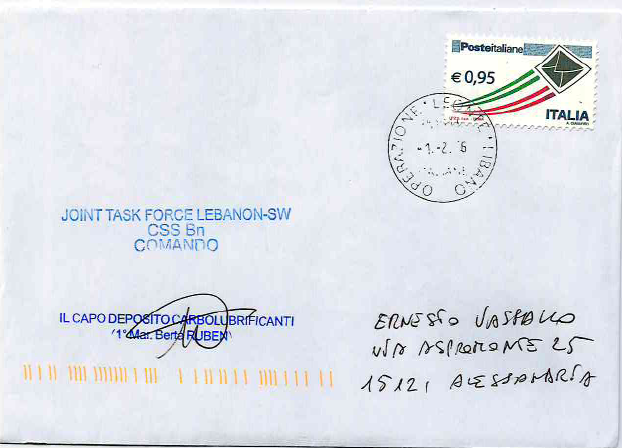 Posteitaliane
€ 0,95
ITALIA
OPERAZIONE · LEONTE · LIBANO
-1.-2. 16
JOINT TASK FORCE LEBANON-SW
CSS Bn
COMANDO
IL CAPO DEPOSITO CARBOLUBRIFICANTI
1° Mar. Berta RUBEN
ERNESTO VASSALLO
VIA ASPROMONTE 25
15121 ALESSANDRIA